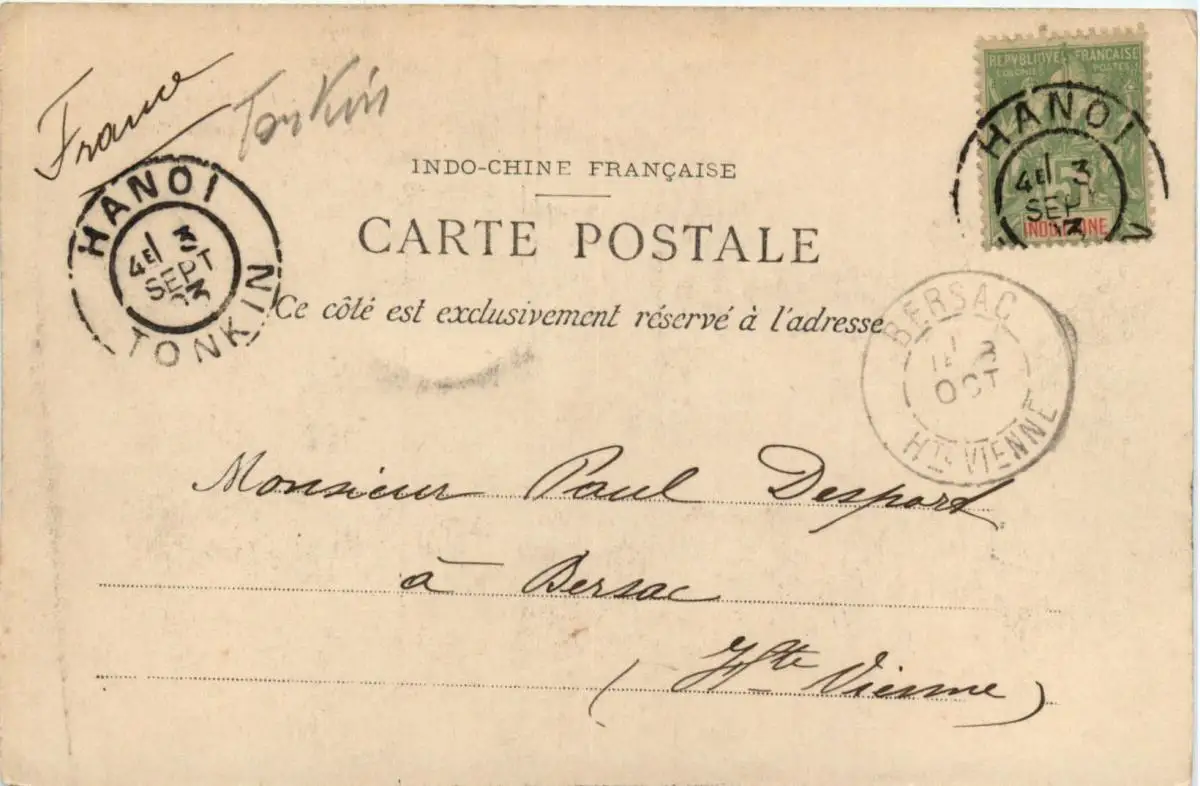 France
Tonkin
INDO-CHINE FRANÇAISE
CARTE POSTALE
Ce côté est exclusivement réservé à l'adresse
REPVBLIQVE FRANÇAISE
COLONIES POSTES
5
INDO-CHINE
HANOI
4E 3
SEPT
03
TONKIN
HANOI
4E 3
SEPT
BERSAC
3
OCT
HTE VIENNE
Monsieur Paul Desport
à Bersac
(Hte Vienne)